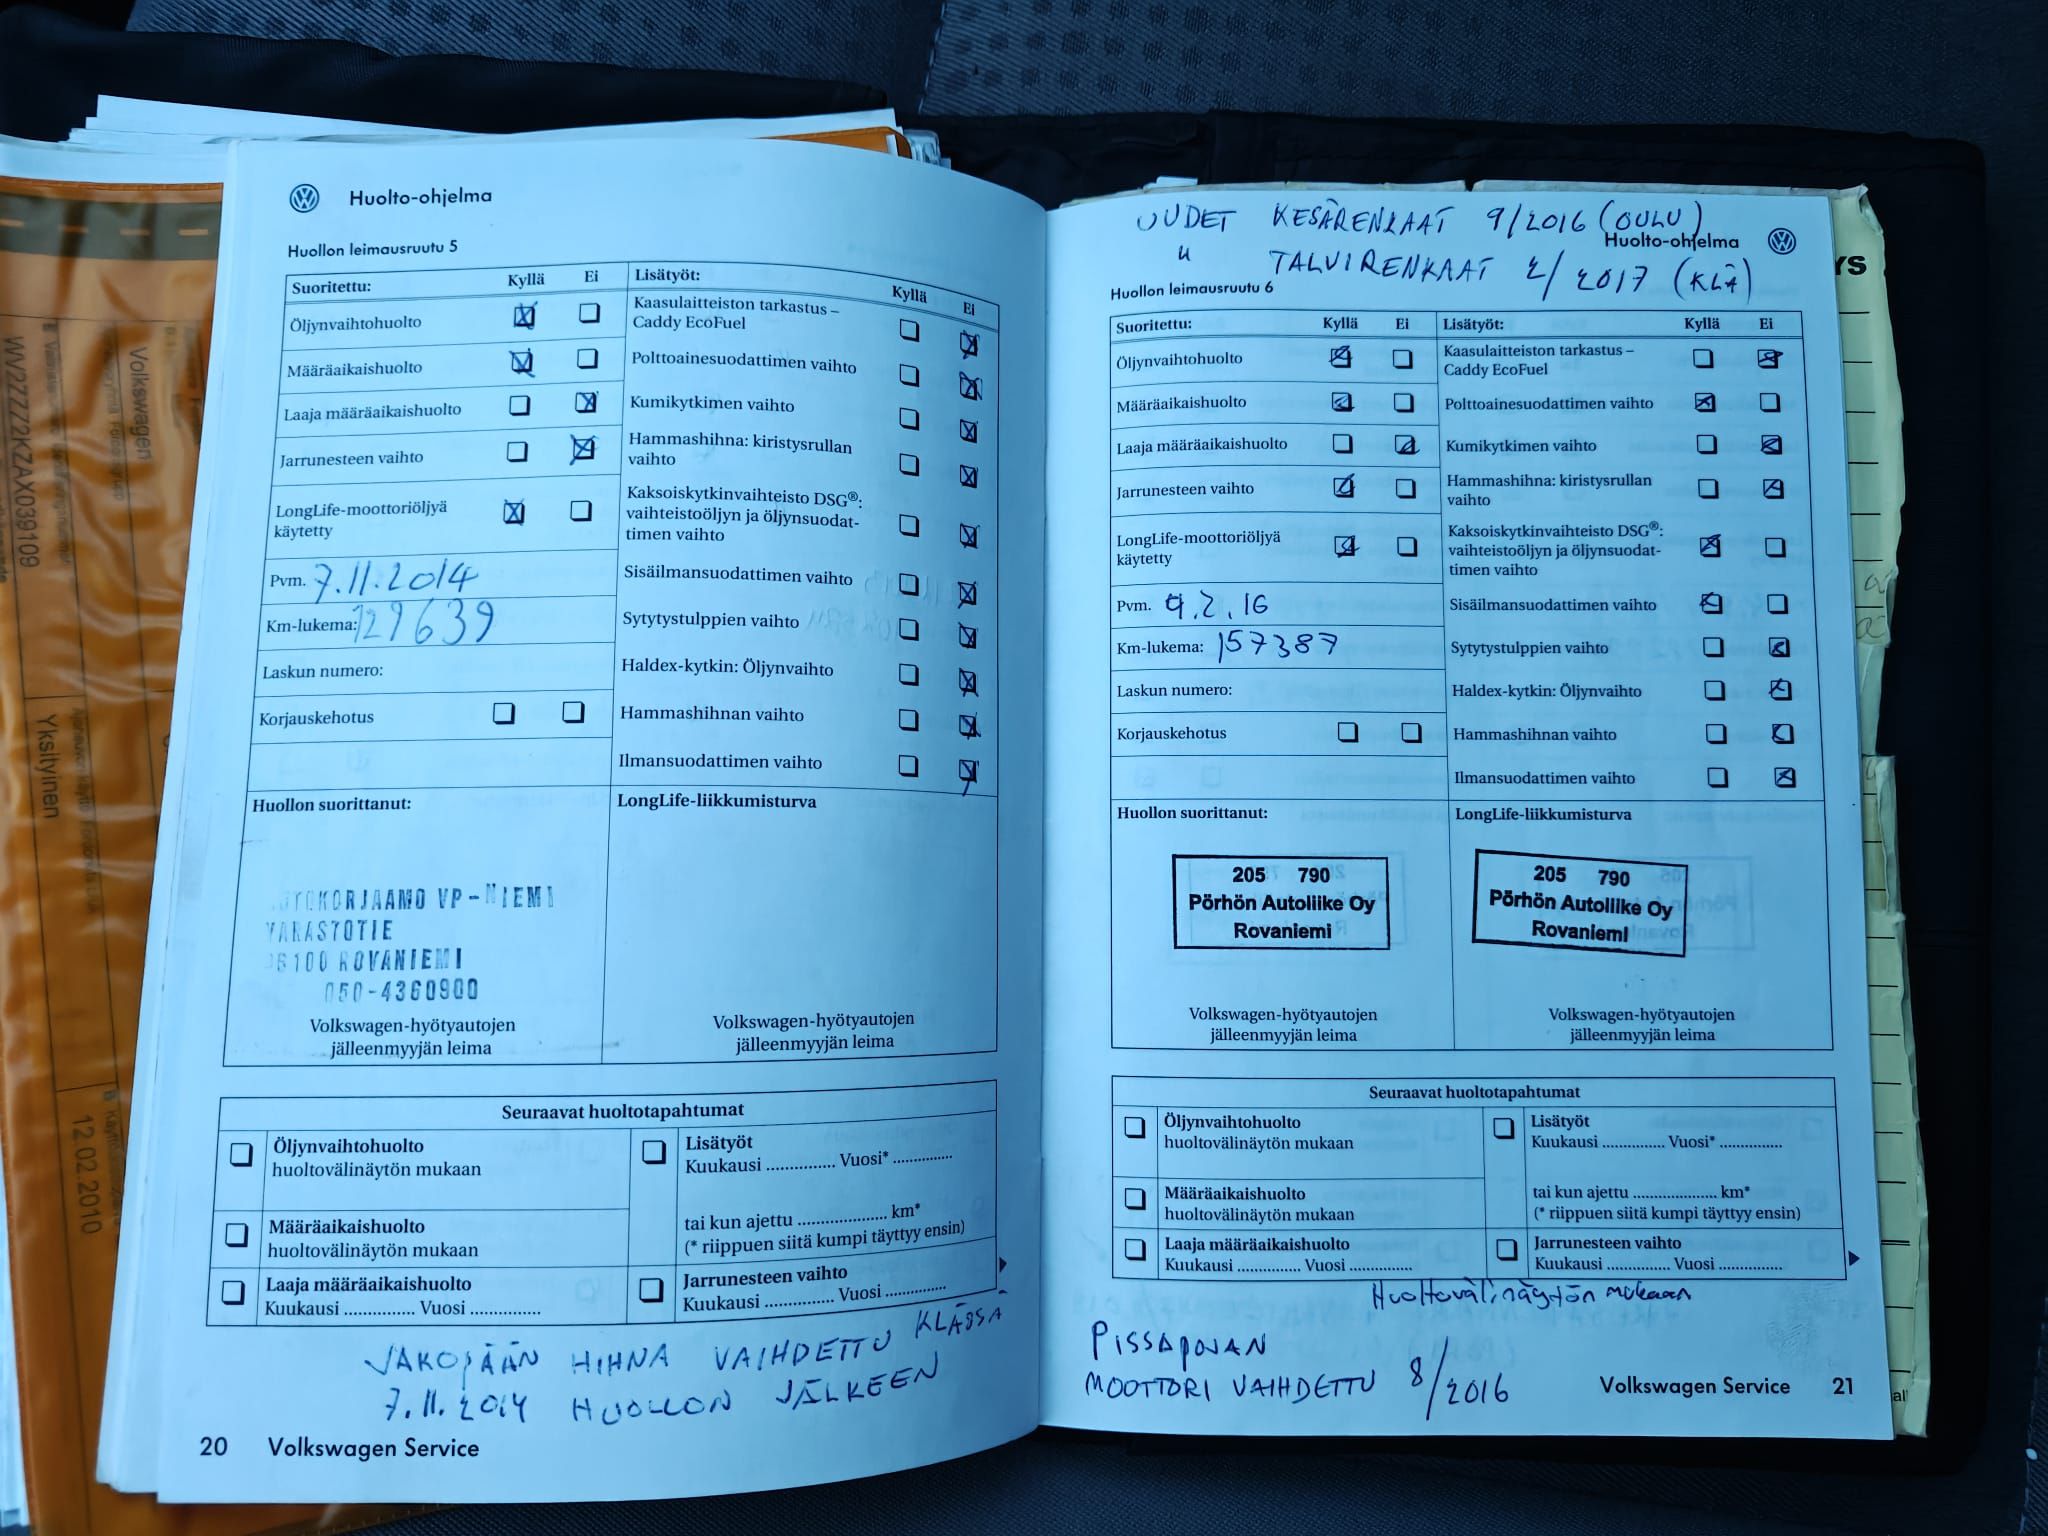 Huolto-ohjelma
Huollon leimausruutu 5
Suoritettu: Kyllä Ei
Öljynvaihtohuolto
Määräaikaishuolto
Laaja määräaikaishuolto
Jarrunesteen vaihto
LongLife-moottoriöljyä
käytetty
Pvm. 7.11.2014
Km-lukema: 129639
Laskun numero:
Korjauskehotus
Lisätyöt: Kyllä Ei
Kaasulaitteiston tarkastus –
Caddy EcoFuel
Polttoainesuodattimen vaihto
Kumikytkimen vaihto
Hammashihna: kiristysrullan
vaihto
Kaksoiskytkinvaihteisto DSG®:
vaihteistoöljyn ja öljynsuodat-
timen vaihto
Sisäilmansuodattimen vaihto
Sytytystulppien vaihto
Haldex-kytkin: Öljynvaihto
Hammashihnan vaihto
Ilmansuodattimen vaihto
Huollon suorittanut:
VP-NIEMI
VARASTOTIE
ROVANIEMI
050-4360900
Volkswagen-hyötyautojen
jälleenmyyjän leima
LongLife-liikkumisturva
Volkswagen-hyötyautojen
jälleenmyyjän leima
Seuraavat huoltotapahtumat
Öljynvaihtohuolto
huoltovälinäytön mukaan
Määräaikaishuolto
huoltovälinäytön mukaan
Laaja määräaikaishuolto
Kuukausi ............... Vuosi ...............
Lisätyöt
Kuukausi ............... Vuosi* .............
tai kun ajettu .................... km*
(* riippuen siitä kumpi täyttyy ensin)
Jarrunesteen vaihto
Kuukausi ............... Vuosi .............
JAKOPÄÄN HIHNA VAIHDETTU KLÄSSÄ
7.11.2014 HUOLLON JÄLKEEN
20 Volkswagen Service
UUDET KESÄRENKAAT 9/2016 (OULU)
" TALVIRENKAAT 2/2017 (KLÄ)
Huolto-ohjelma
Huollon leimausruutu 6
Suoritettu: Kyllä Ei
Öljynvaihtohuolto
Määräaikaishuolto
Laaja määräaikaishuolto
Jarrunesteen vaihto
LongLife-moottoriöljyä
käytetty
Pvm. 9.2.16
Km-lukema: 157387
Laskun numero:
Korjauskehotus
Lisätyöt: Kyllä Ei
Kaasulaitteiston tarkastus –
Caddy EcoFuel
Polttoainesuodattimen vaihto
Kumikytkimen vaihto
Hammashihna: kiristysrullan
vaihto
Kaksoiskytkinvaihteisto DSG®:
vaihteistoöljyn ja öljynsuodat-
timen vaihto
Sisäilmansuodattimen vaihto
Sytytystulppien vaihto
Haldex-kytkin: Öljynvaihto
Hammashihnan vaihto
Ilmansuodattimen vaihto
Huollon suorittanut:
205 790
Pörhön Autoliike Oy
Rovaniemi
Volkswagen-hyötyautojen
jälleenmyyjän leima
LongLife-liikkumisturva
205 790
Pörhön Autoliike Oy
Rovaniemi
Volkswagen-hyötyautojen
jälleenmyyjän leima
Seuraavat huoltotapahtumat
Öljynvaihtohuolto
huoltovälinäytön mukaan
Määräaikaishuolto
huoltovälinäytön mukaan
Laaja määräaikaishuolto
Kuukausi .............. Vuosi ..............
Lisätyöt
Kuukausi .............. Vuosi* ..............
tai kun ajettu .................... km*
(* riippuen siitä kumpi täyttyy ensin)
Jarrunesteen vaihto
Kuukausi .............. Vuosi ..............
Huoltovälinäytön mukaan
PISSAPOJAN
MOOTTORI VAIHDETTU 8/2016
Volkswagen Service 21
Volkswagen
WV2ZZZ2KZAX039109
Yksityinen
12.02.2010
YS